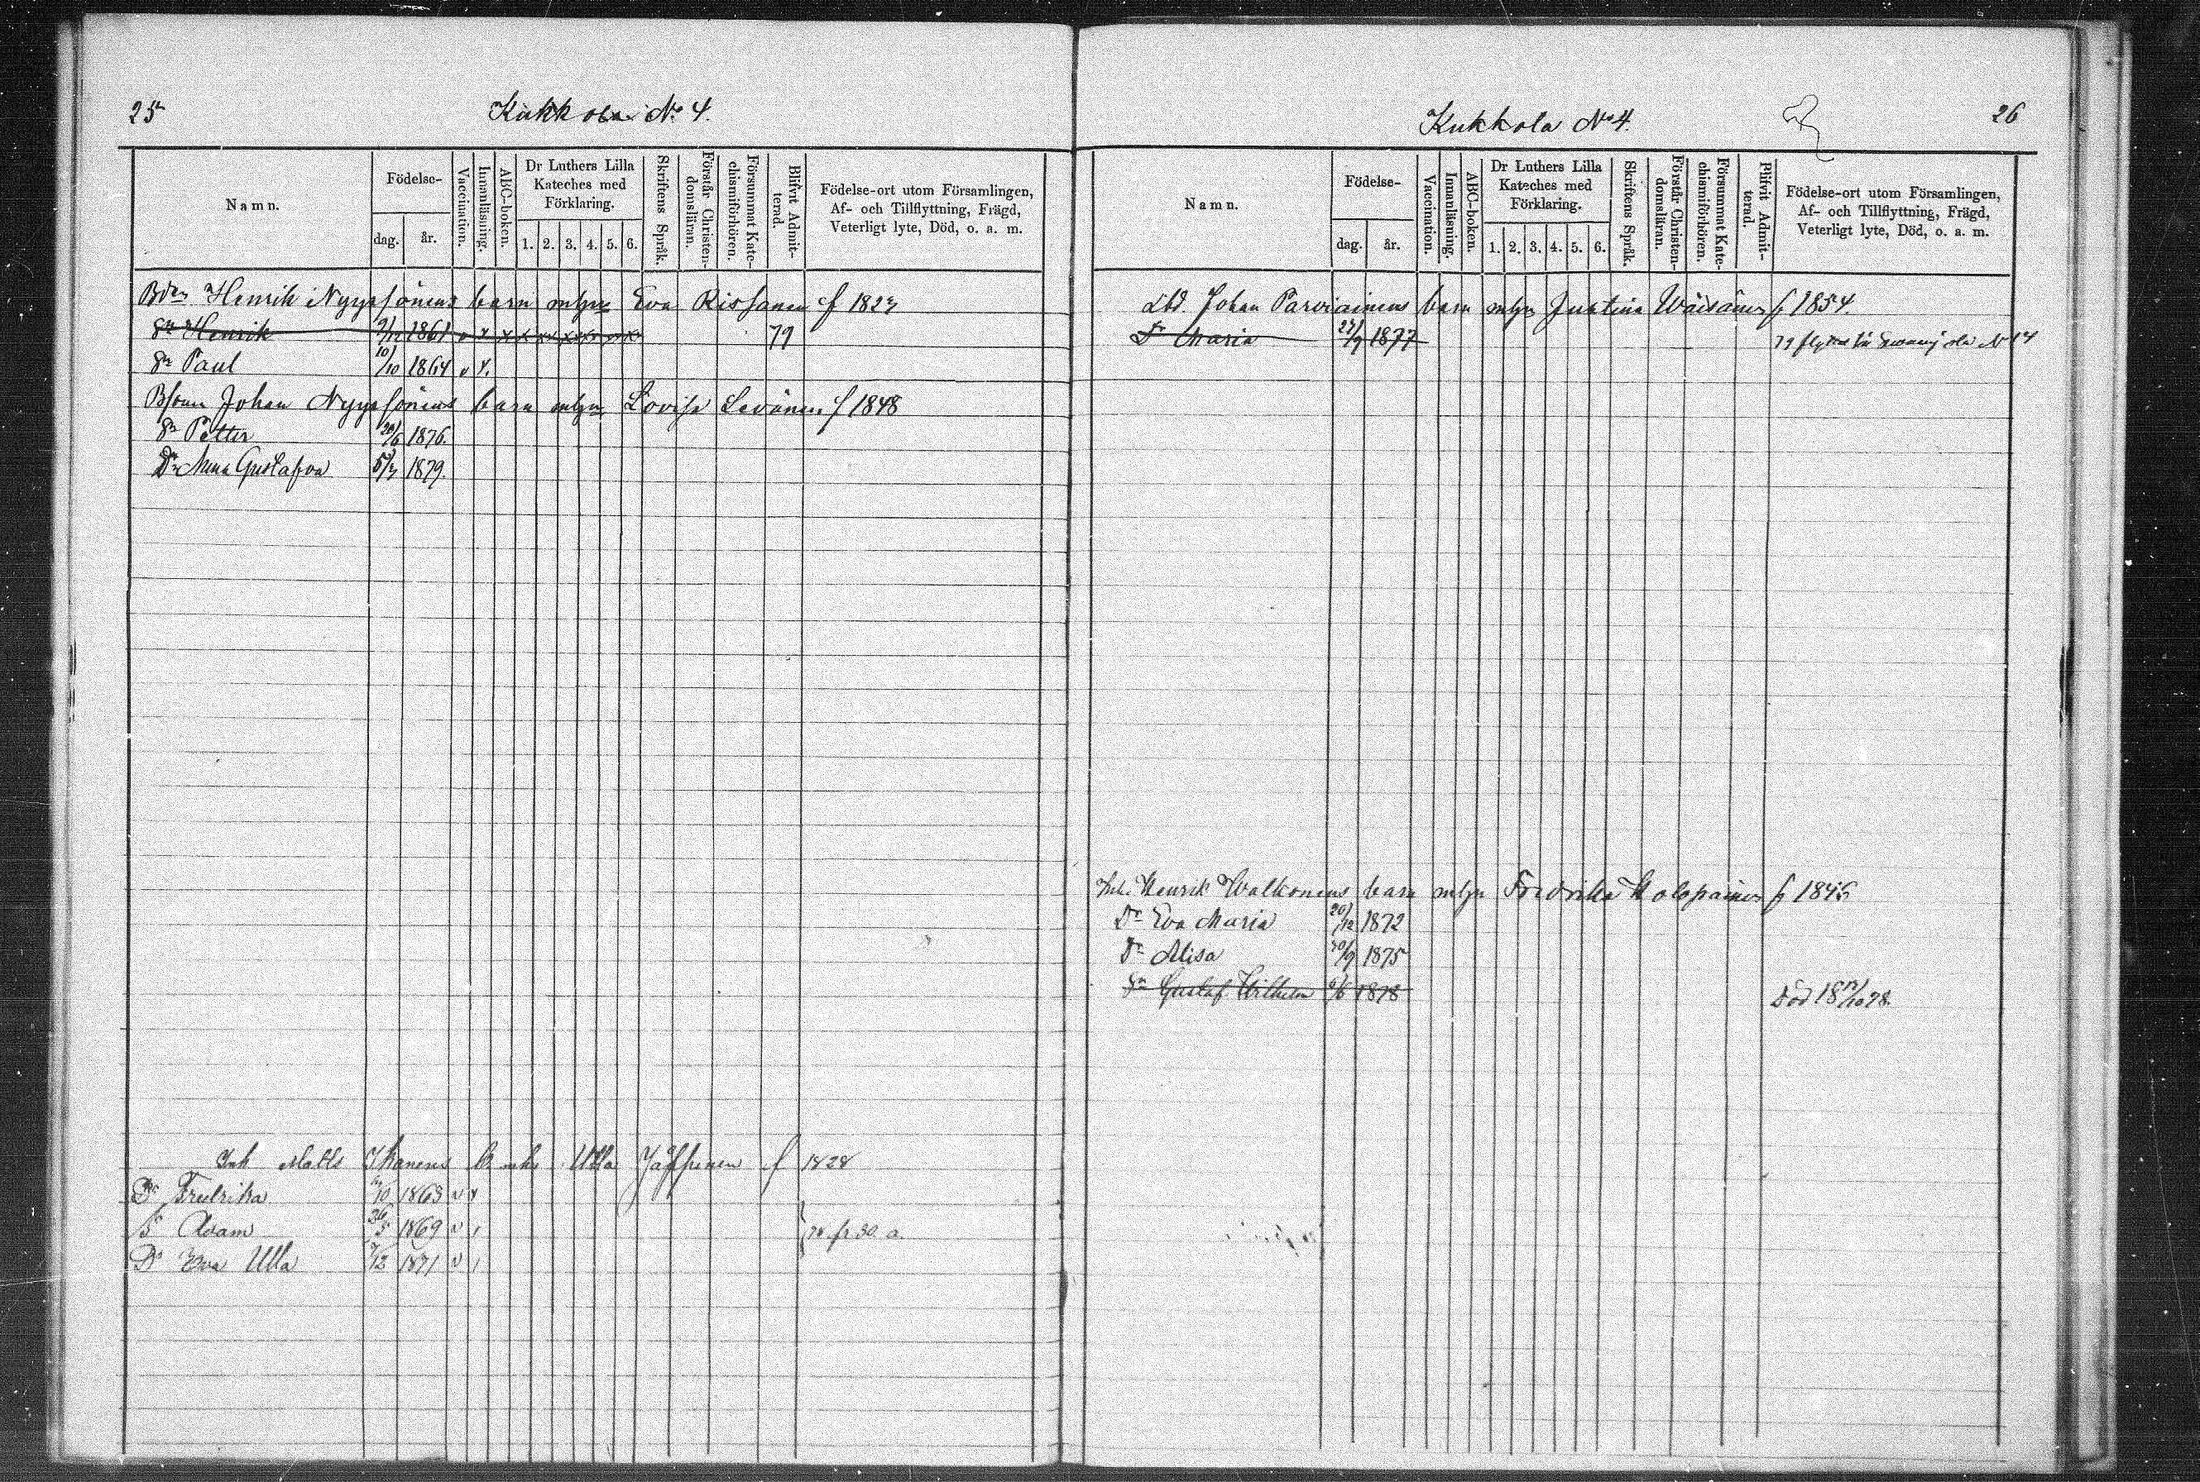 25
Kukkola No 4.
Namn.
Födelse-
dag.
år.
Vaccination.
Innanläsning.
ABC-boken.
Dr Luthers Lilla
Kateches med
Förklaring.
1. 2. 3. 4. 5. 6.
Skriftens Språk.
Förstår Christen-
domsläran.
Försummat Kate-
chismiförhören.
Blifvit Admit-
terad.
Födelse-ort utom Församlingen,
Af- och Tillflyttning, Frägd,
Veterligt lyte, Död, o. a. m.
Bdn Henrik Nyyssönens barn m hn Eva Rissanen f 1823
Sn Henrik 9/12 1861 79
Sn Paul 10/10 1864 v
Johan Nyyssönens barn Lovisa Levänen f 1848
Sn Petter 1876.
Dr Anna Gustafva 5/7 1879.
Inh Matts Ikanens b Ulla f 1828
Dr Fredrika 1863 v
Sn Adam 26/5 1869 v
Dr Eva Ulla 7/12 1871 v
78 fr
26
Kukkola No 4.
Namn.
Födelse-
dag.
år.
Vaccination.
Innanläsning.
ABC-boken.
Dr Luthers Lilla
Kateches med
Förklaring.
1. 2. 3. 4. 5. 6.
Skriftens Språk.
Förstår Christen-
domsläran.
Försummat Kate-
chismiförhören.
Plifvit Admit-
terad.
Födelse-ort utom Församlingen,
Af- och Tillflyttning, Frägd,
Veterligt lyte, Död, o. a. m.
Johan Parviainens barn Justina Wäisänen f 1854.
Dr Maria 27/9 1877 79 flyttat till No 14
Inh. Henrik Walkonens barn Fredrika Holopainen f 1845
Dr Eva Maria 20/12 1872
Dr Alisa 1875
Sn Gustaf Wilhelm 1878 Död